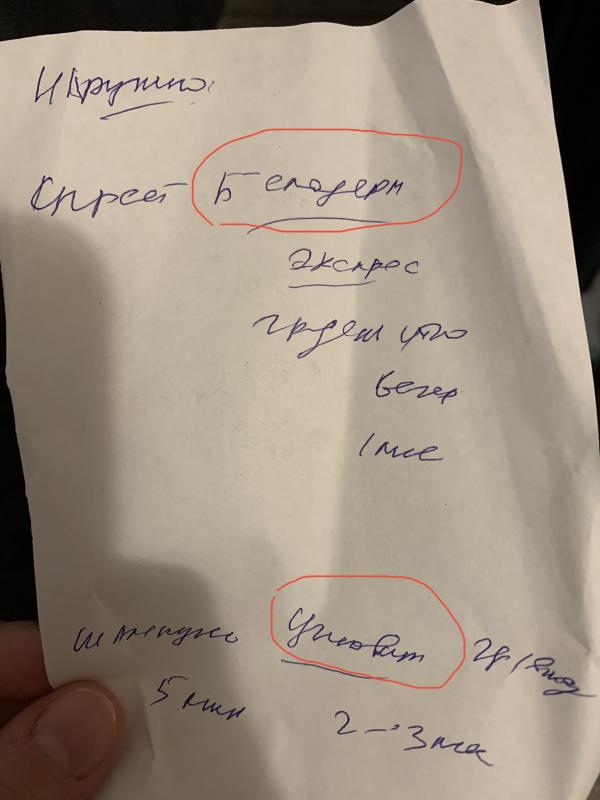 Наружно:
Спрей Белодерм
экспрес
2р день утро
вечер
1 мес
шампунь Циновит 2р/нед
5 мин 2-3 мес